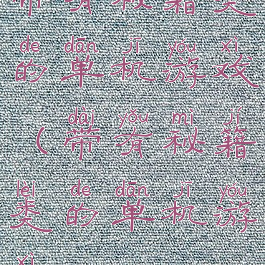 带有秘籍类
de dān jī yóu xì
的单机游戏
dài yǒu mì jí
（带有秘籍
lèi de dān jī yóu
类的单机游
xì